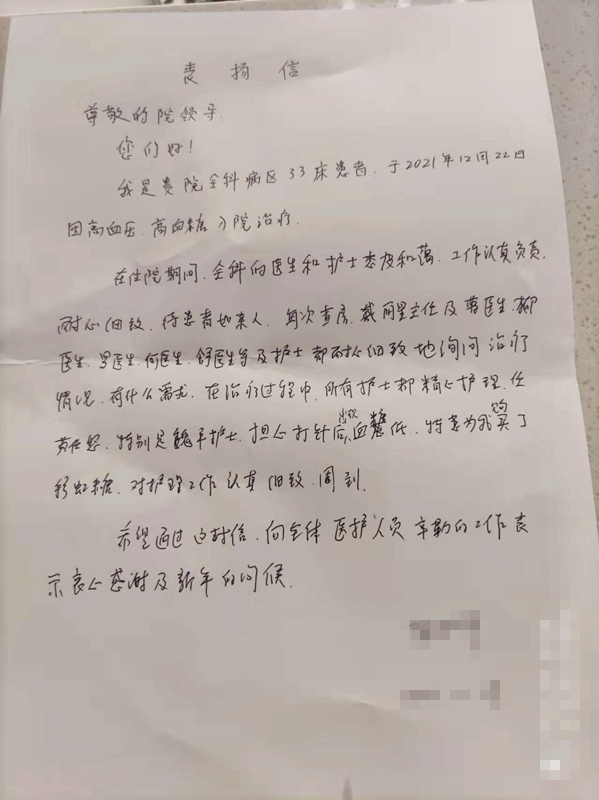 表扬信
尊敬的院领导
您们好!
我是贵院全科病区33床患者.于2021年12月22日
因高血压.高血糖入院治疗.
在住院期间.全科的医生和护士态度和蔼.工作认真负责.
耐心细致.待患者如亲人.每次查房.戴丽星主任及曹医生.柳
医生.罗医生.何医生.舒医生等及护士都耐心细致地询问治疗
情况.有什么需求.在治疗过程中.所有护士都精心护理.任
劳任怨.特别是魏平护士.担心打针后出现血糖低.特意为我购买了
彩虹糖.对护理工作认真细致.周到.
希望通过这封信.向全体医护人员辛勤的工作表
示衷心感谢及新年的问候.